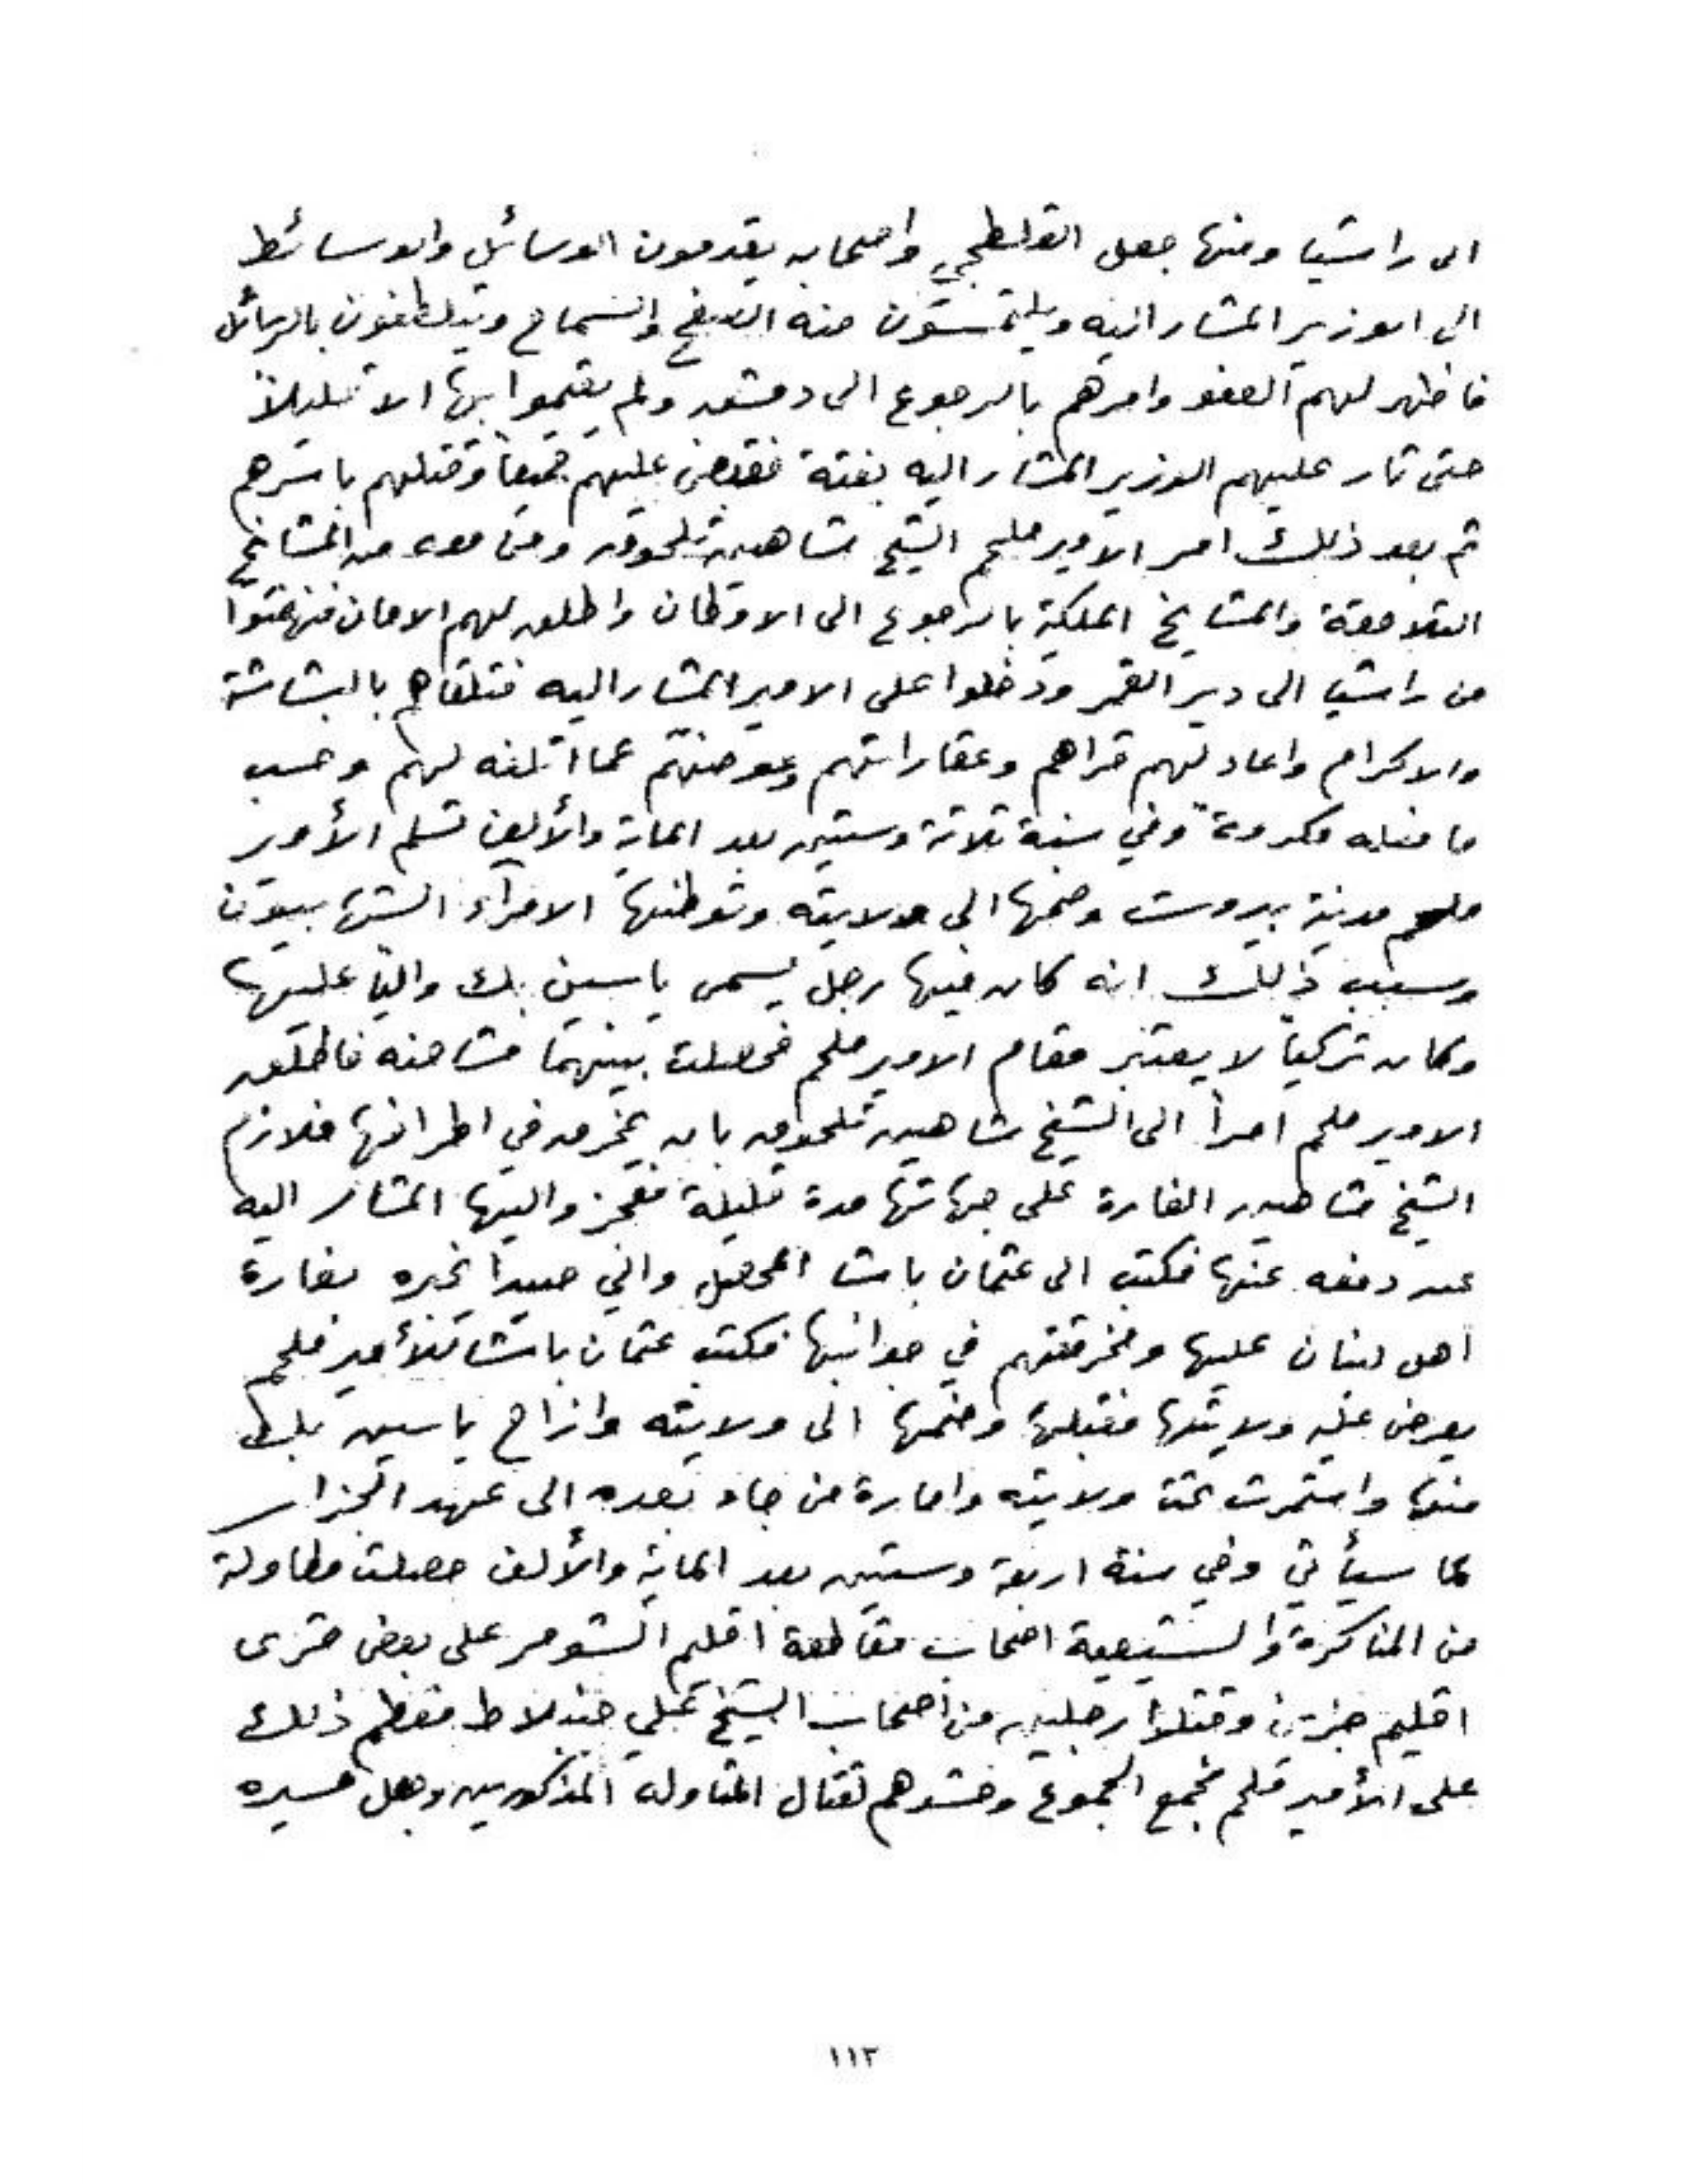 الى راشيا ومنها جعل القلطقجي واصحابه يقدمون الوسائل والوسائط
الى الوزير المشار اليه ويلتمسون منه الصفح والسماح ويتلطفون بالرسائل
فاظهر لهم العفو وامرهم بالرجوع الى دمشق ولم يقيموا بها الا قليلاً
حتى ثار عليهم الوزير المشار اليه بغتة فقبض عليهم جميعاً وقتلهم باسرهم
ثم بعد ذلك امر الامير ملحم الشيخ شاهين تلحوق ومن معه من المشايخ
التلاحقة والمشايخ الملكية بالرجوع الى الاوطان واطلق لهم الامان فنهضوا
من راشيا الى دير القمر ودخلوا على الامير المشار اليه فتلقاهم بالبشاشة
والاكرام واعاد لهم قراهم وعقاراتهم وعوضهم عما اتلفه لهم وحسب
ما فعله مكرمة وفي سنة ثلاثة وستين بعد الماية والألف تسلم الأمير
ملحم مدينة بيروت وضمها الى ولايته وتوطنها الامرآء الشهابيون
وسبب ذلك انه كان فيها رجل يسمى ياسين بك والياً عليها
وكان تركياً لا يعتبر مقام الامير ملحم فحصلت بينهما مشاحنه فاطلق
الامير ملحم امراً الى الشيخ شاهين تلحوق بان يخرق في اطرافها فلازم
الشيخ شاهين الغارة على جهاتها مدة قليلة فعجز واليها المشار اليه
عن دفعه عنها فكتب الى عثمان باشا المحصل والي صيدا يخبره بغارة
اهل لبنان عليها ومخرقتهم في جوانبها فكتب عثمان باشا للأمير ملحم
يعرض عليه ولايتها فقبلها وضمها الى ولايته وازاح ياسين بك
منها واستمرت تحت ولايته وامارة من جاء بعده الى عهد الجزار
كما سيأتي وفي سنة اربعة وستين بعد الماية والألف حصلت مطاولة
من المناكرة والشيعية اصحاب مقاطعة اقليم الشومر على بعض قرى
اقليم جزين وقتلوا رجلين من اصحاب الشيخ علي جنبلاط فعظم ذلك
على الأمير ملحم فجمع الجموع وحشدهم لقتال المتاولة المذكورين وجعل مسيره
١١٢